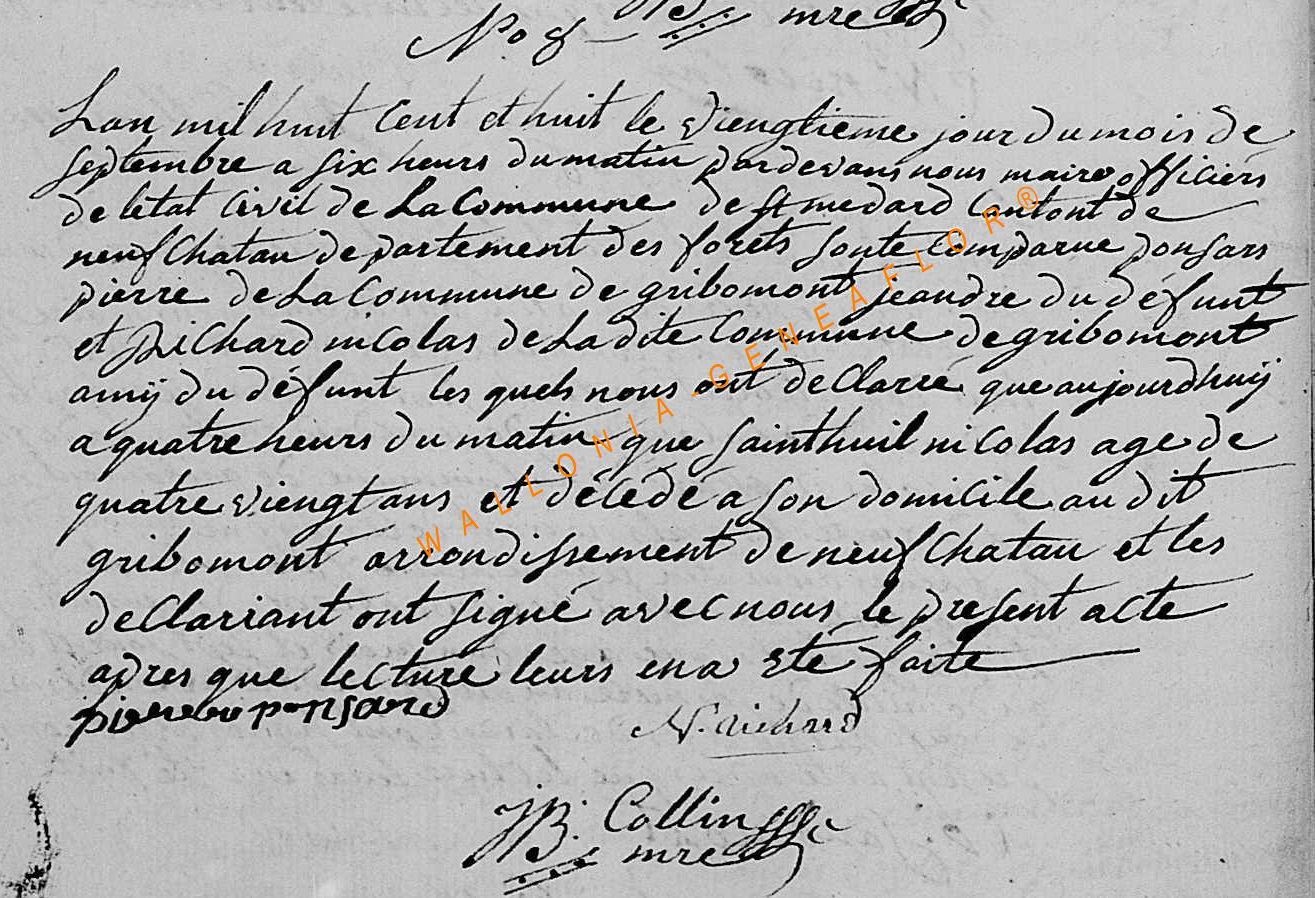 No 8 JB mre
Lan mil huit Cent et huit le viengtieme jour du mois de
septembre a six heurs du matin pardevans nous maire officiers
de letat Civil de La Commune de st medard Cantont de
neufChatau departement des forets sonte Comparue ponsars
pierre de La Commune de gribomont jeandre du défunt
et Richard nicolas de Ladite Commune de gribomont
amij du défunt les quels nous ont deClarré que aujourdhuij
a quatre heurs du matin que sainthuil nicolas age de
quatre viengt ans et décedé a son domicile au dit
gribomont arrondissement de neufChatau et les
deClariant ont signé avec nous le present acte
apres que lecture leurs en a eté faite
pierre ponsard N. Richard
JB. Collin
mre
WALLONIA-GENEAFLOR®